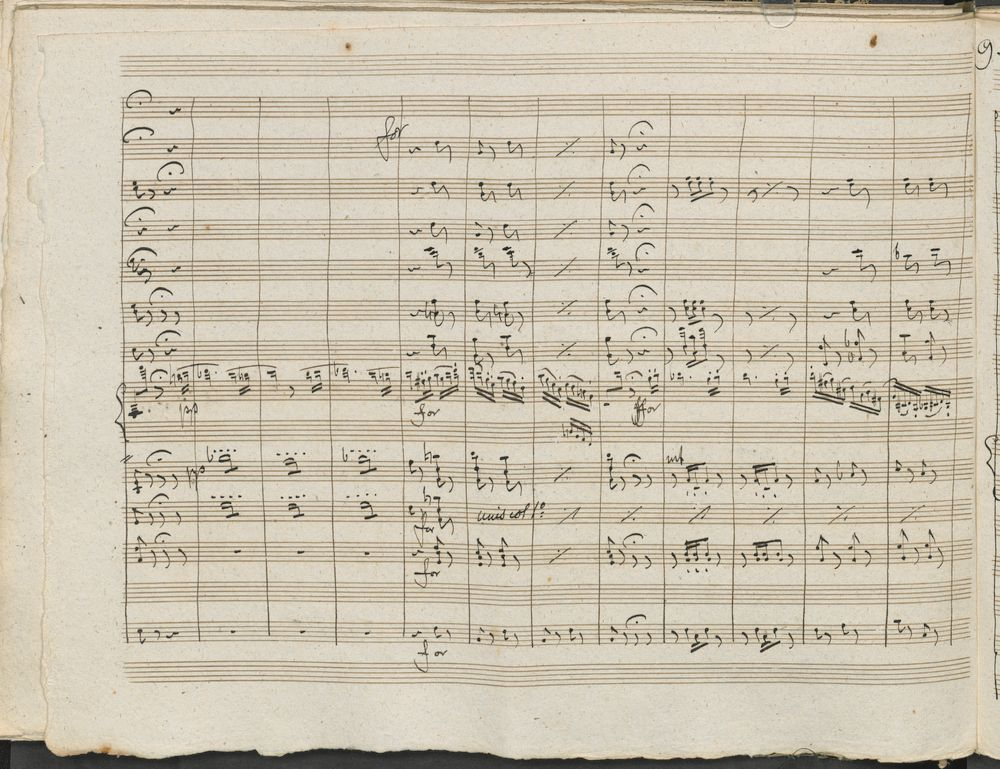 for
9.
pp
for
ffor
pp
mf
unis col 1º
for
for
for